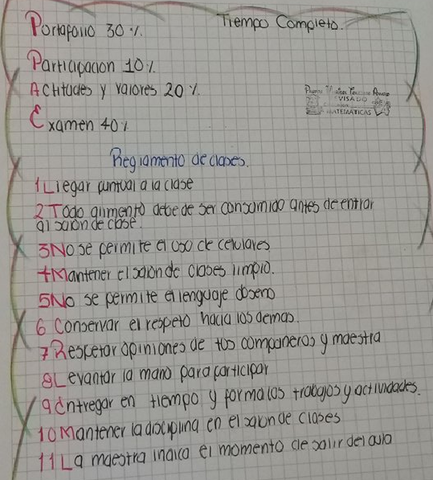 Portafolio 30%. Tiempo Completo.
Participacion 10%
Actitudes y valores 20%.
Examen 40%
REVISADO
MATEMATICAS
Reglamento de clases.
1 Llegar puntual a la clase
2 Todo alimento debe de ser consumido antes de entrar
al salon de clase.
3 No se permite el uso de celulares
4 Mantener el salon de clases limpio.
5 No se permite el lenguaje obseno
6 Conservar el respeto hacia los demas.
7 Respetar opiniones de tus compañeros y maestra
8 Levantar la mano para participar
9 Entregar en tiempo y forma los trabajos y actividades.
10 Mantener la disciplina en el salon de clases
11 La maestra indica el momento de salir del aula